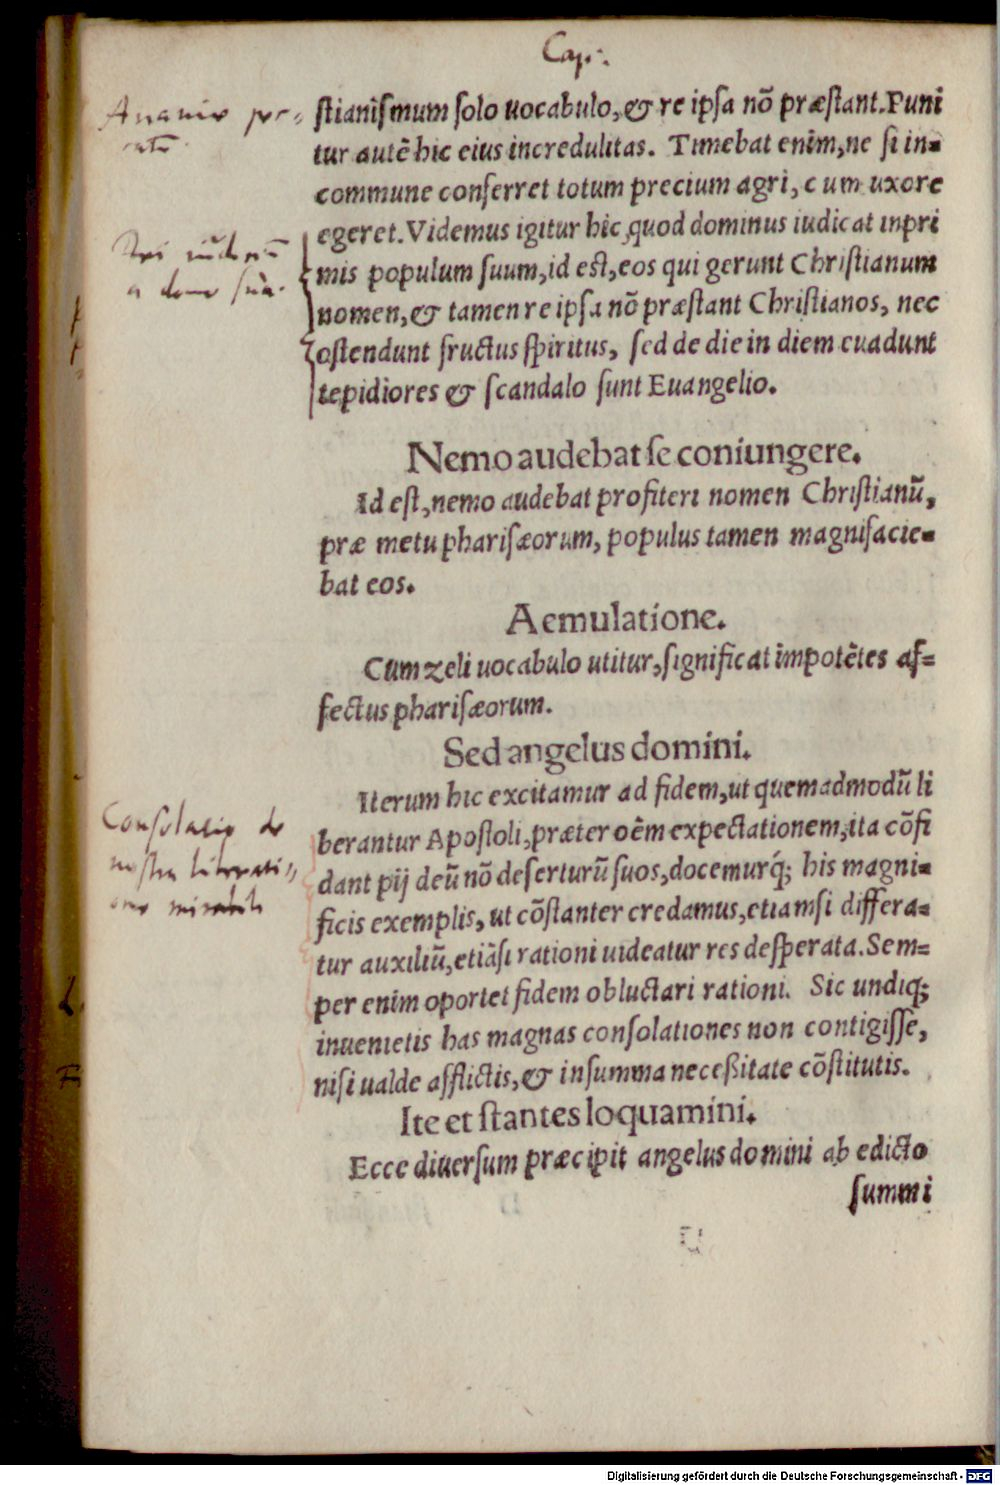 Cap.
Ananiæ pec-
catū.
stianismum solo uocabulo, & re ipsa nō præstant. Puni
tur autē hic eius incredulitas. Timebat enim, ne si in-
commune conferret totum precium agri, cum uxore
egeret. Videmus igitur hic quod dominus iudicat inpri
mis populum suum, id est, eos qui gerunt Christianum
a domo sua.
nomen, & tamen re ipsa nō præstant Christianos, nec
ostendunt fructus spiritus, sed de die in diem euadunt
tepidiores & scandalo sunt Euangelio.
Nemo audebat se coniungere.
Id est, nemo audebat profiteri nomen Christianū,
præ metu pharisæorum, populus tamen magnifacie-
bat eos.
Aemulatione.
Cum zeli uocabulo utitur, significat impotētes af-
fectus pharisæorum.
Sed angelus domini.
Iterum hic excitamur ad fidem, ut quemadmodū li
Consolatio de
nostra liberati-
one mirabili
berantur Apostoli, præter oēm expectationem, ita cōfi
dant pij deū nō deserturū suos, docemurq́; his magni-
ficis exemplis, ut cōstanter credamus, etiamsi differa-
tur auxiliū, etiāsi rationi uideatur res desperata. Sem-
per enim oportet fidem obluctari rationi. Sic undiq;
inuenietis has magnas consolationes non contigisse,
nisi ualde afflictis, & in summa neceßitate cōstitutis.
Ite et stantes loquamini.
Ecce diuersum præcipit angelus domini ab edicto
summi
Digitalisierung gefördert durch die Deutsche Forschungsgemeinschaft - DFG